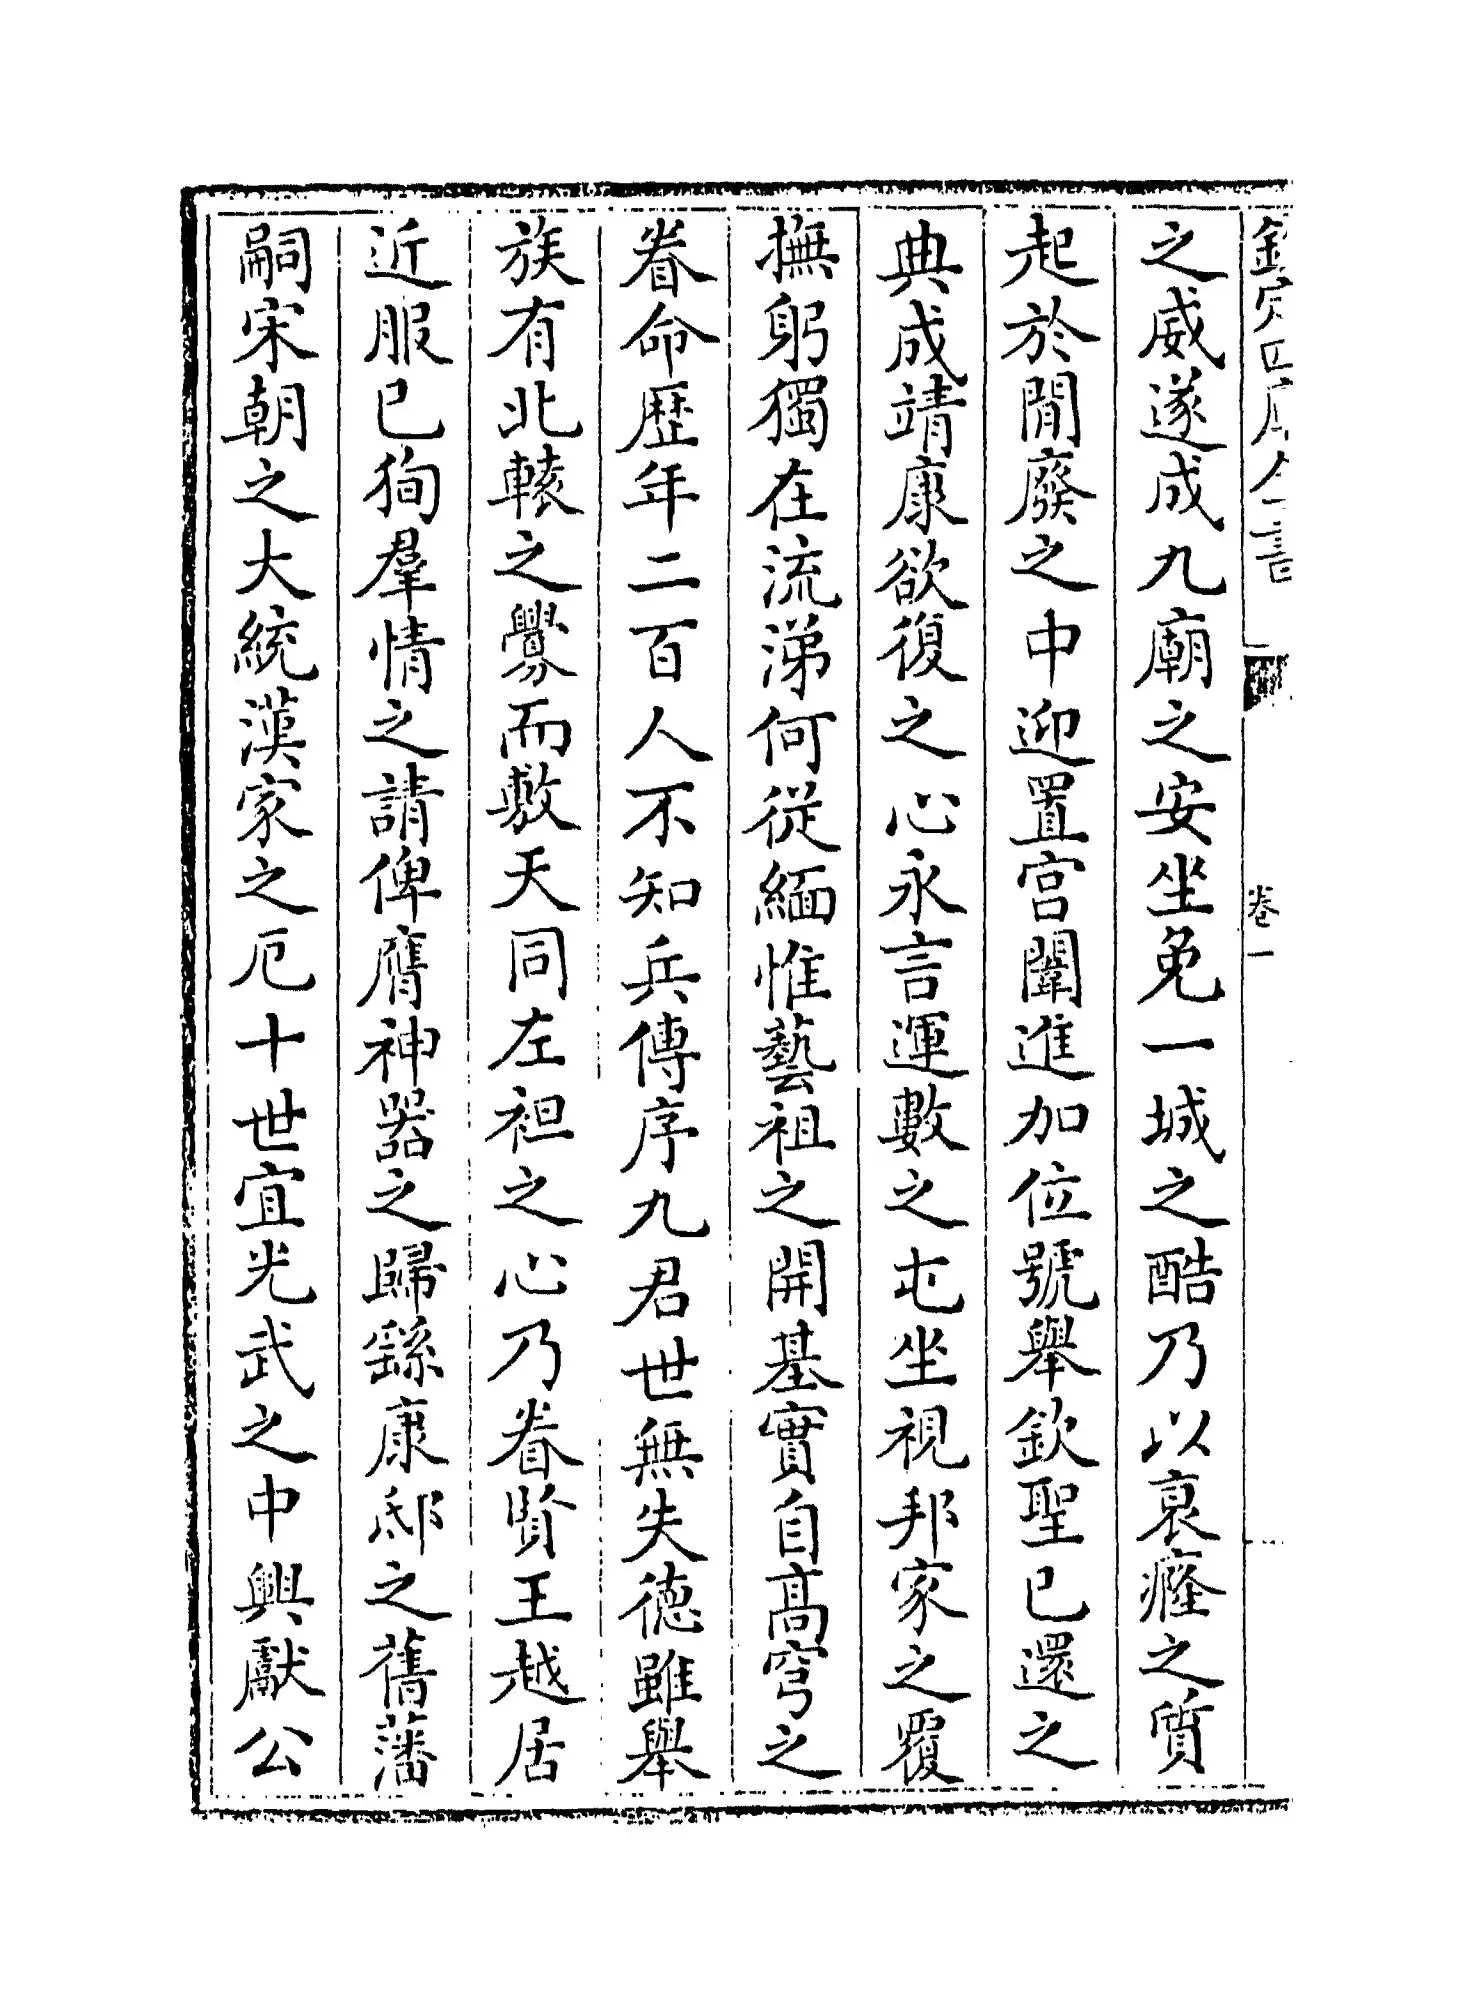 欽定四庫全書
卷一
之威遂成九廟之安坐免一城之酷乃以衰癃之質
起於閒廢之中迎置宫闈進加位號舉欽聖已還之
典成靖康欲復之心永言運數之屯坐視邦家之覆
撫躬獨在流涕何從緬惟藝祖之開基實自高穹之
眷命歷年二百人不知兵傳序九君世無失德雖舉
族有北轅之釁而敷天同左袒之心乃眷賢王越居
近服已徇羣情之請俾膺神器之歸繇康邸之舊藩
嗣宋朝之大統漢家之厄十世宜光武之中興獻公